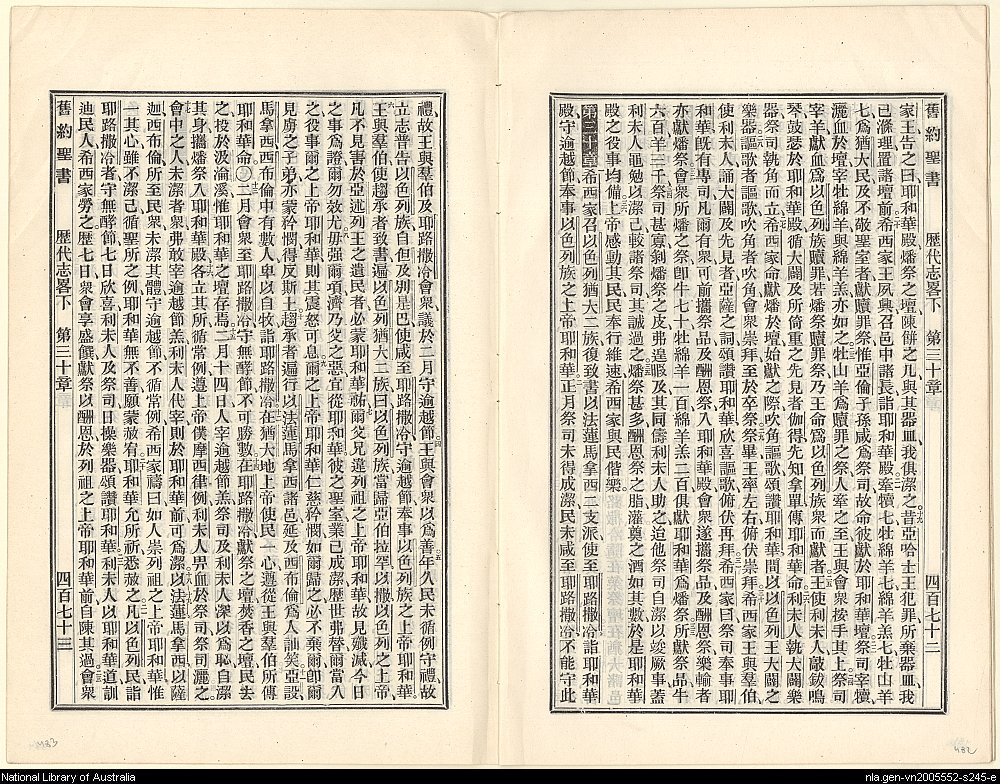 舊約聖書 歷代志畧下 第三十章 四百七十二
家王告之曰耶和華殿燔祭之壇陳餅之几與其器皿我俱潔之昔亞哈士王犯罪所棄器皿我
已滌理置諸壇前希西家王夙興召邑中諸長詣耶和華殿牽犢七牡綿羊七綿羊羔七牡山羊
七爲猶大民及不敬聖室者獻贖罪祭惟亞倫子孫咸爲祭司故命彼獻於耶和華壇祭司宰犢
灑血於壇宰牡綿羊與綿羊羔亦如之牡山羊爲贖罪之祭人牽之至王與會衆按手其上祭司
宰羊獻血爲以色列族贖罪若燔祭贖罪祭乃王命爲以色列族衆而獻者王使利未人敲鈸鳴
琴鼓瑟於耶和華殿循大闢及所倚重之先見者伽得先知拿單傳耶和華命利未人執大闢樂
器祭司執角而立希西家命獻燔於壇始獻之際吹角謳歌頌讚耶和華間以以色列王大闢之
樂器謳歌者謳歌吹角者吹角會衆崇拜至於卒祭祭畢王率左右俯伏崇拜希西家王與羣伯
使利未人誦大闢及先見者亞薩之詞頌讚耶和華欣喜謳歌俯伏再拜希西家曰祭司奉事耶
和華旣有專司凡爾有衆可前攜祭品及酬恩祭入耶和華殿會衆遂攜祭品及酬恩祭樂輸者
亦獻燔祭會衆所燔之祭卽牛七十牡綿羊一百綿羊羔二百俱獻耶和華爲燔祭所獻祭品牛
六百羊三千祭司甚寡剝燔祭之皮弗遑暇及其同儔利未人助之迨他祭司自潔以竣厥事蓋
利未人黽勉以潔己較諸祭司其誠過之燔祭甚多酬恩祭之脂灌奠之酒如其數於是耶和華
殿之役事均備上帝感動其民民奉行維速希西家與民偕樂
第三十章希西家召以色列猶大二族復致書以法蓮馬拿西二支派使至耶路撒冷詣耶和華
殿守逾越節奉事以色列族之上帝耶和華正月祭司未得成潔民未咸至耶路撒冷不能守此
禮故王與羣伯及耶路撒冷會衆議於二月守逾越節王與會衆以爲善年久人民未循例守禮故
立志普告以色列族自但及別是巴使咸至耶路撒冷守逾越節奉事以色列族之上帝耶和華
王與羣伯使趨承者致書遍以色列猶大二族曰以色列族當歸亞伯拉罕以撒以色列之上帝
凡不見害於亞述列王之遺民者必蒙耶和華祐爾父兄違列祖之上帝耶和華故見殲滅今日
之事爲證爾勿效尤毋强爾項濟乃父之惡宜從耶和華彼之聖室業已成潔歷世弗替爾當入
之役事爾之上帝耶和華則其震怒可息爾之上帝耶和華仁慈矜憫如爾歸之必不棄爾卽爾
見虜之子弟亦蒙矜憫得反斯土趨承者遍行以法蓮馬拿西諸邑延及西布倫爲人訕笑亞設
馬拿西西布倫中有數人卑以自牧詣耶路撒冷在猶大地上帝使民一心遵從王與羣伯所傳
耶和華命〇二月會衆至耶路撒冷守無酵節不可勝數在耶路撒冷獻祭之壇焚香之壇民去
之投於汲淪溪惟耶和華之壇存焉二月十四日人宰逾越節羔祭司及利未人深以爲恥自潔
其身攜燔祭入耶和華殿各立其所循常例遵上帝僕摩西律例利未人畀血於祭司祭司灑之
會中之人未潔者衆弗敢宰逾越節羔利未人代宰則於耶和華前可爲潔以法蓮馬拿西以薩
迦西布倫所至民衆未潔其體守逾越節不循常例希西家禱曰如人崇列祖之上帝耶和華惟
一其心雖不潔己循聖所之例耶和華無不善願蒙赦宥耶和華允所祈悉赦之凡以色列民詣
耶路撒冷者守無酵節七日欣喜利未人及祭司日操樂器頌讚耶和華利未人以耶和華道訓
迪民人希西家勞之歷七日衆會享盛饌獻祭以酬恩於列祖之上帝耶和華前自陳其過會衆
舊約聖書 歷代志畧下 第三十章 四百七十三
National Library of Australia
nla.gen-vn2005552-s245-e